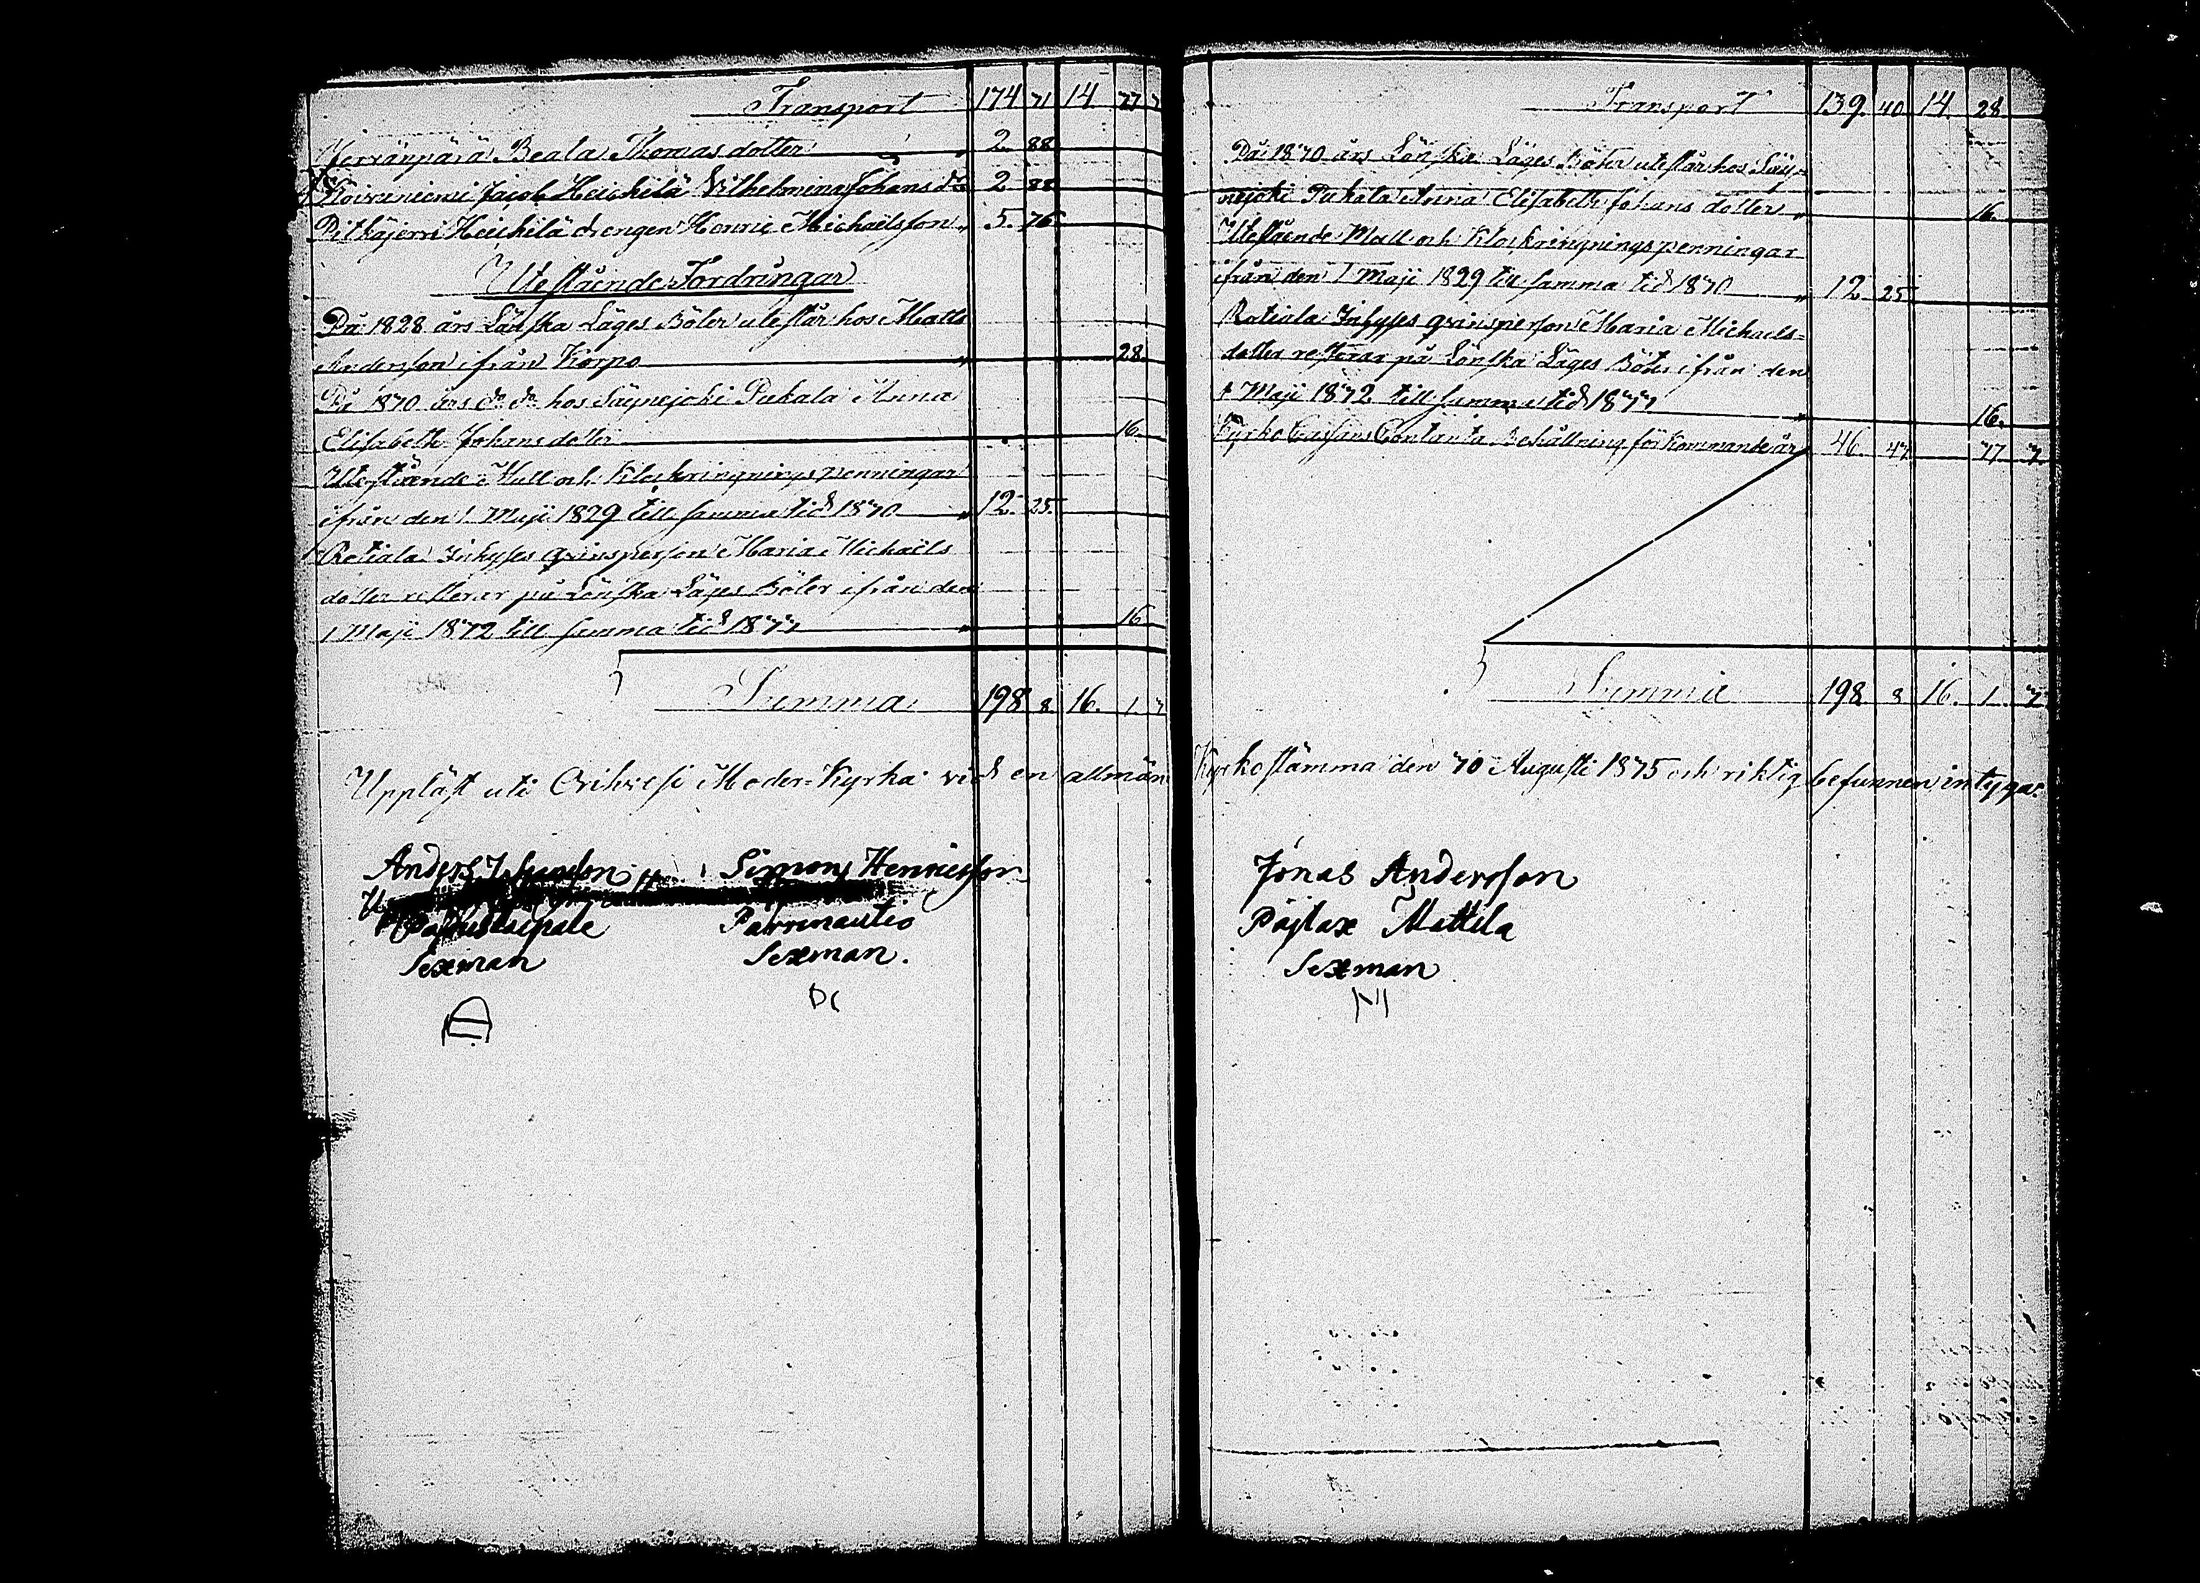 Transport 174 71 14 77 7
Verränpärä Beata Thomas dotter 2. 88
Koivuniemi Jacob Heickilä Vilhelmina Johans dr 2 88
Pitkäjerri Heickilä drengen Henric Michaëlsson 5. 76
Utestående Fordringar
På 1828 års Lönska Läges Böter utestår hos Matts
Andersson ifrån Korpo 28
På 1870 års do do hos Säynejoki Pukala Anna
Elisabeth Johans dotter 16
Utestående Mull och Klockringnings penningar
ifrån den 1 Maji 1829 till samma tid 1870 12. 25.
Ratiala Inhyses qvinsperson Maria Michaëls
dotter resterar på Lönska Läges Böter ifrån den
1 Maji 1872 till samma tid 1877 16
Summa 198 8 16. 1. 7
Uppläst uti Orihvesi Moder-Kyrka vid en allmän
Anders Simon Henricsson
Parrinautio
Sexman Sexman.
Transport 139. 40 14. 28
På 1870 års Lönska Läges Böter utestår hos Säy-
nejoki Pukala Anna Elisabeth Johans dotter 16.
Utestående Mull och Klockringnings penningar
ifrån den 1 Maji 1829 till samma tid 1870 12 25
Ratiala Inhyses qvinsperson Maria Michaels-
dotter resterar på Lönska Läges Böter ifrån den
1 Maji 1872 till samma tid 1877 16.
Kyrko Cassans Contanta Behållning för Kommande år 46. 47 77 7.
Summa 198 8 16. 1. 7
Kyrkostämma den 10 Augusti 1875 och riktig befunnen intygar.
Jonas Andersson
Päjlax Mattila
Sexman